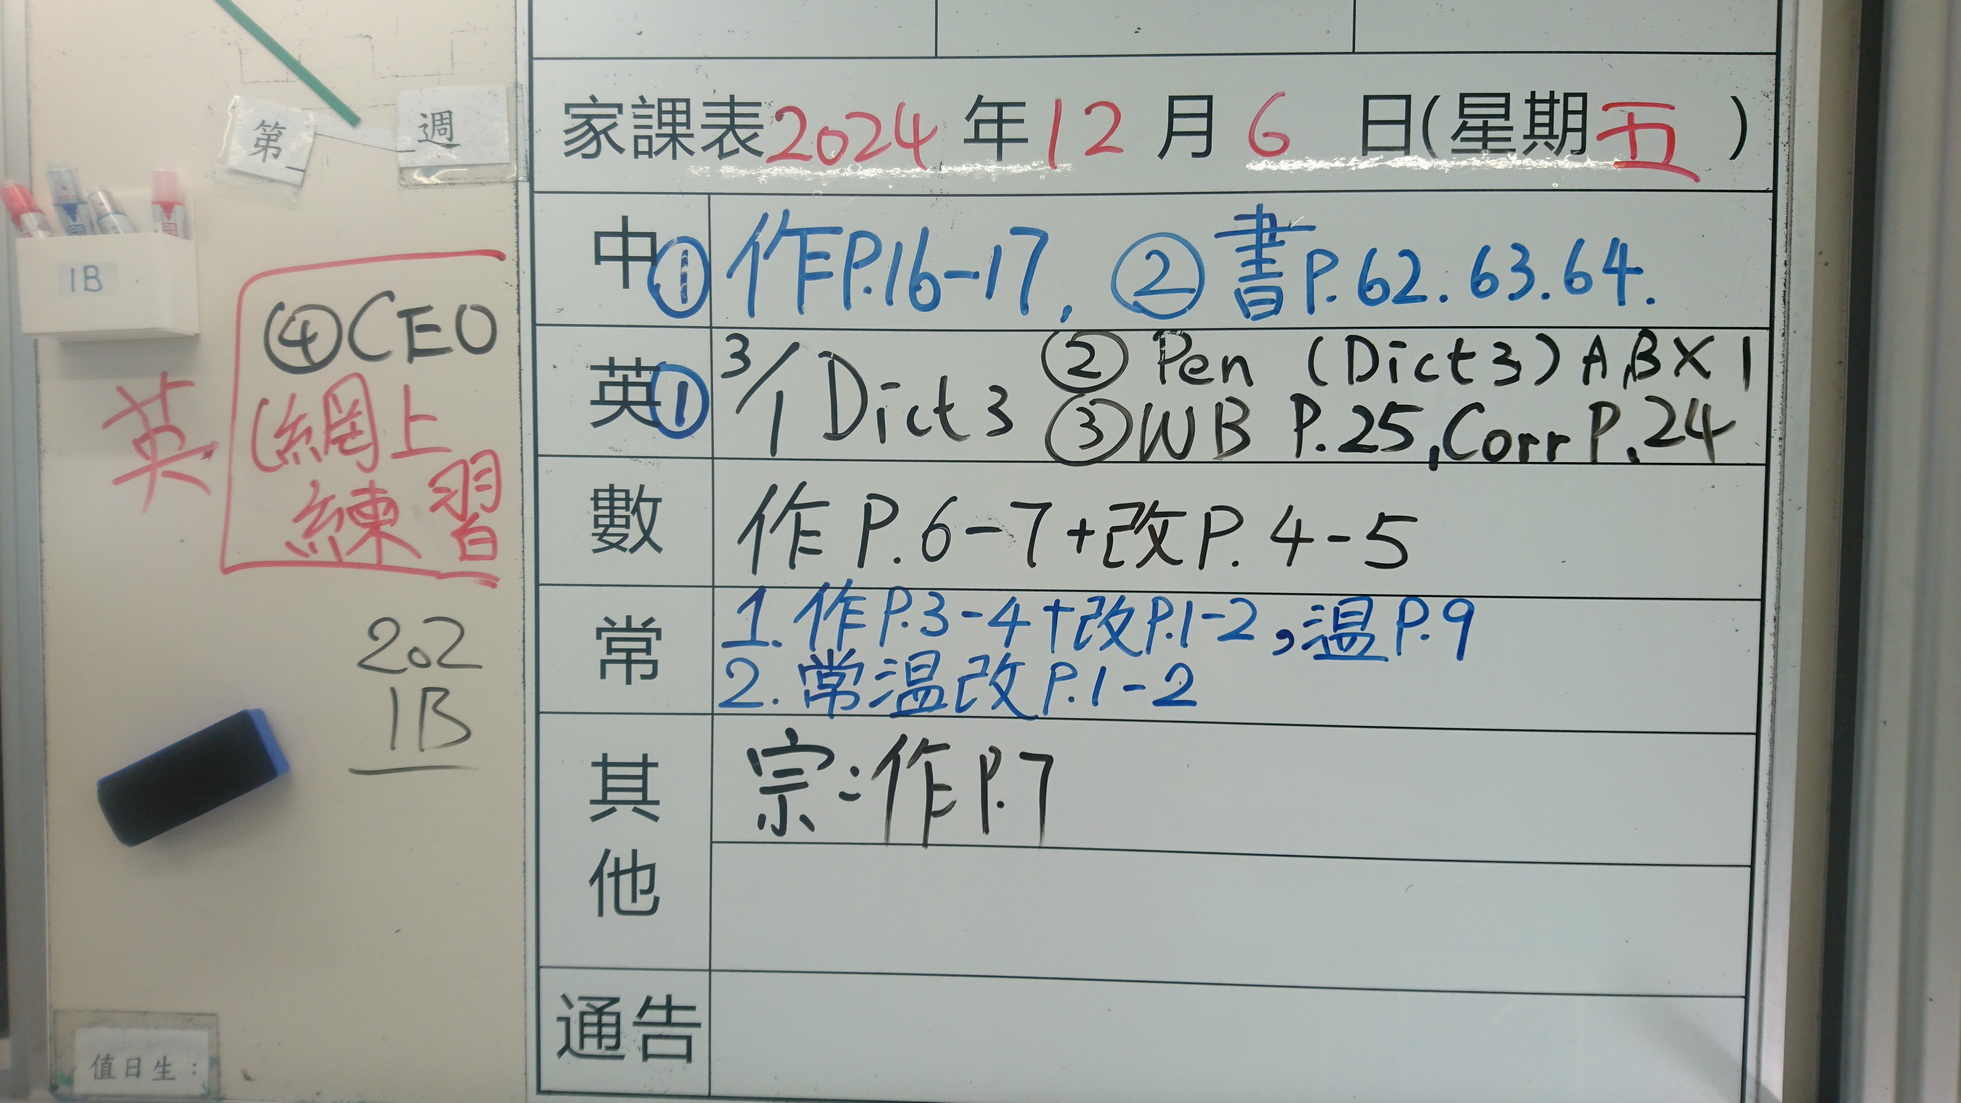 第 週
1B
英
④CEO
(網上
練習
202
1B
值日生：
家課表2024年12月6日(星期五)
中 ①作P.16-17, ②書P.62.63.64.
英 ① 3/1 Dict 3 ② Pen (Dict 3) A,B X 1
③WB P.25,Corr P.24
數 作P.6-7+改P.4-5
常 1.作P.3-4+改P.1-2,溫P.9
2.常溫改P.1-2
其他 宗:作P.7
通告